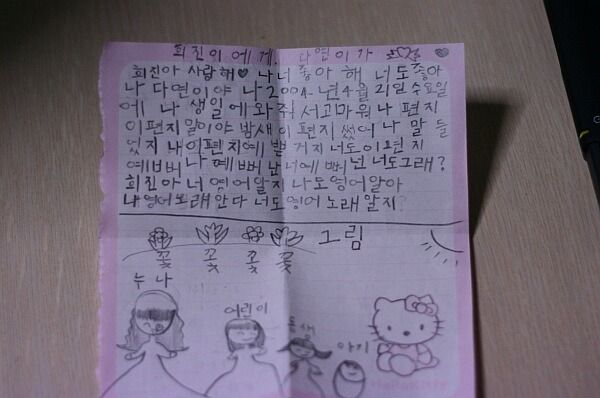 희진이에게. 나연이가
희진아 사랑해♥ 나 너 좋아해 너도 좋아
나 다연이야 나 2004.년 4월 21일 수요일
에 나 생일에 와줘서 고마워 나 편지
이편지 말이야 밤새 이 편지 썼어 나 말 들
었지 내 이편지예 받 거지 너도 이편지
예뻐 나 예뻐 난 너예뻐 넌 너도그래?
희진아 너 영어알지 나도영어알아
나 영어노래 안다 너도영어 노래 알지?
그림
꽃 꽃 꽃 꽃
누나
어린이
아기